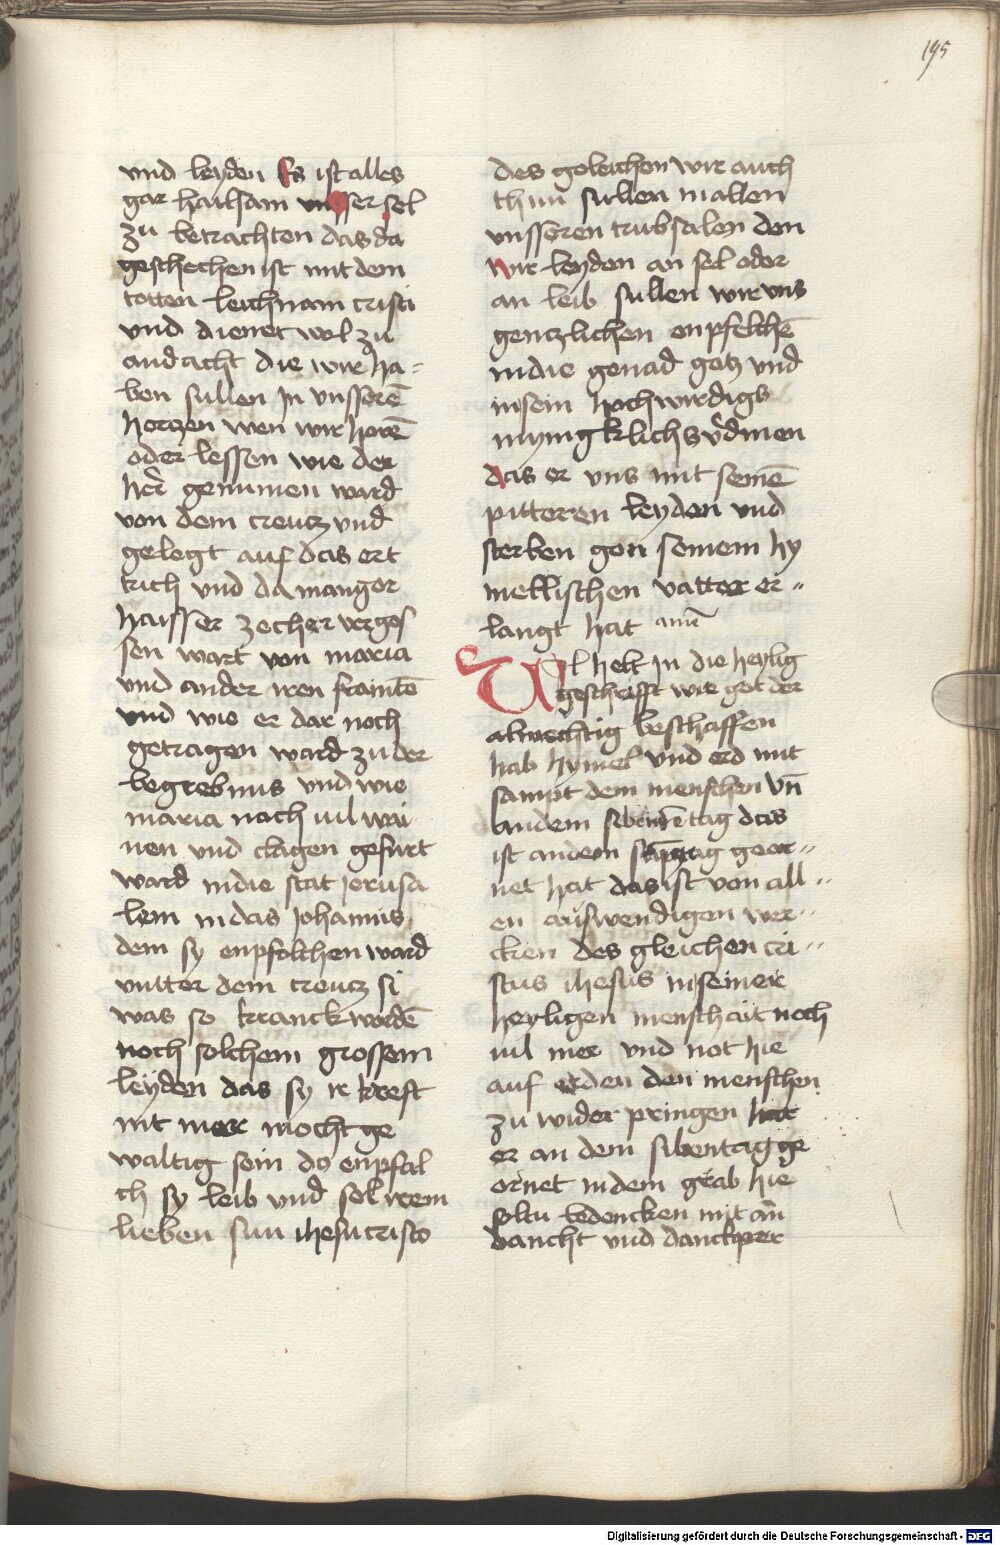 195
und leyden Es ist alles
gar hailsam unsser sel
zu betrachten das da
geschechen ist mit dem
totten leichnam cristi
und dienet wol zu
andacht die wir ha-
ben sullen Jn unsserē
hertzen wen wir horē
oder lessen wie der
her̄ genumen ward
von dem creutz und
gelegt auf das ert
trich und da manger
haisser zecher vergos
sen wart von maria
und ander iren frointē
und wie er dar noch
getragen ward zu der
begrebnus und wie
maria noch vil wai
nen und clagen gefürt
ward indie stat jerusa
lem in das Johannis
dem sy enpfolchen ward
untter dem creutz si
was so kranck wordē
noch solchem grossem
leyden das sy ir kreft
nit mer mocht ge
waltig sein do enpfal
ch sy leib und sel irem
lieben sun ihesu cristo
des geleichen wir auch
thun sullen in allen
unsseren trubsalen den
wir leyden an sel oder
an leib sullen wir uns
gentzlichen enpfelchē
in die genad gotz und
in sein hochwirdigs
das er uns mit seinē
pitteren leyden und
sterben gen seinem hy
mellischen vatter er-
langt hat amē
Ul helt jn die heylig
geschrifft wie got der
almechtig beschaffen
hab hymel und erd mit
sampt dem menschen vn̄
an dem sibendē tag das
ist an dem geor-
net hat das ist von all-
en auswendigen wer-
cken des gleichen cri-
stus ihesus in seiner
heyligen menschait noch
vil mer und not hie
auf erden den menschen
zu wider pringen hat
er an dem sibentag ge
ornet in dem grab hie
soltu bedencken mit an̄
dancht und danckper
Digitalisierung gefördert durch die Deutsche Forschungsgemeinschaft - DFG